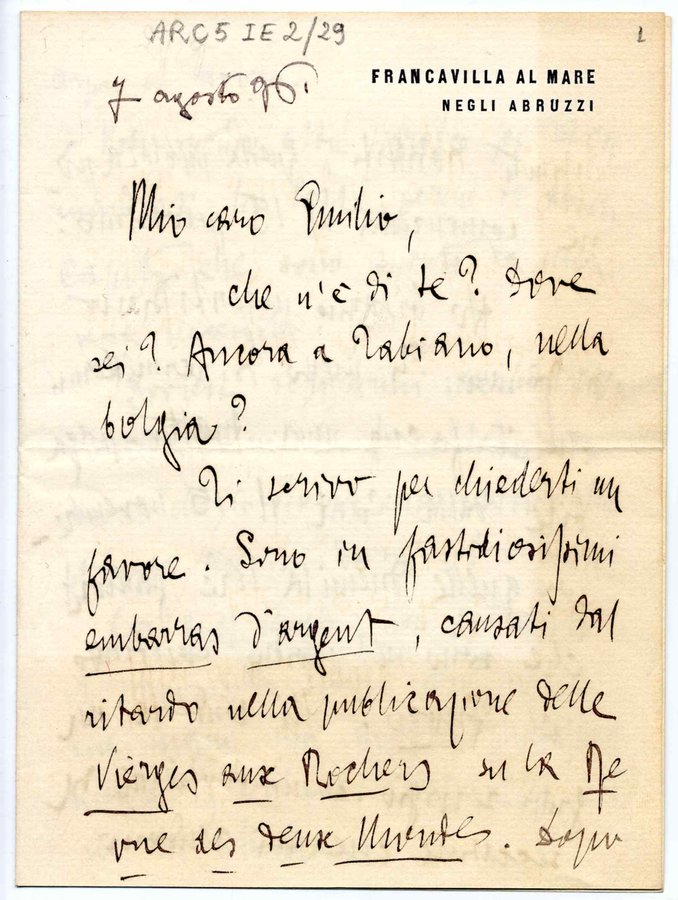 ARC 5 I E 2/29
1
FRANCAVILLA AL MARE
NEGLI ABRUZZI
7 agosto 96.
Mio caro Emilio,
che n'è di te? Dove
sei? Ancora a Tabiano, nella
bolgia?
Ti scrivo per chiederti un
favore. Sono in fastidiosissimi
embarras d'argent, causati dal
ritardo nella publicazione delle
Vierges aux Rochers su la Re
vue des deux Mondes. Dopo